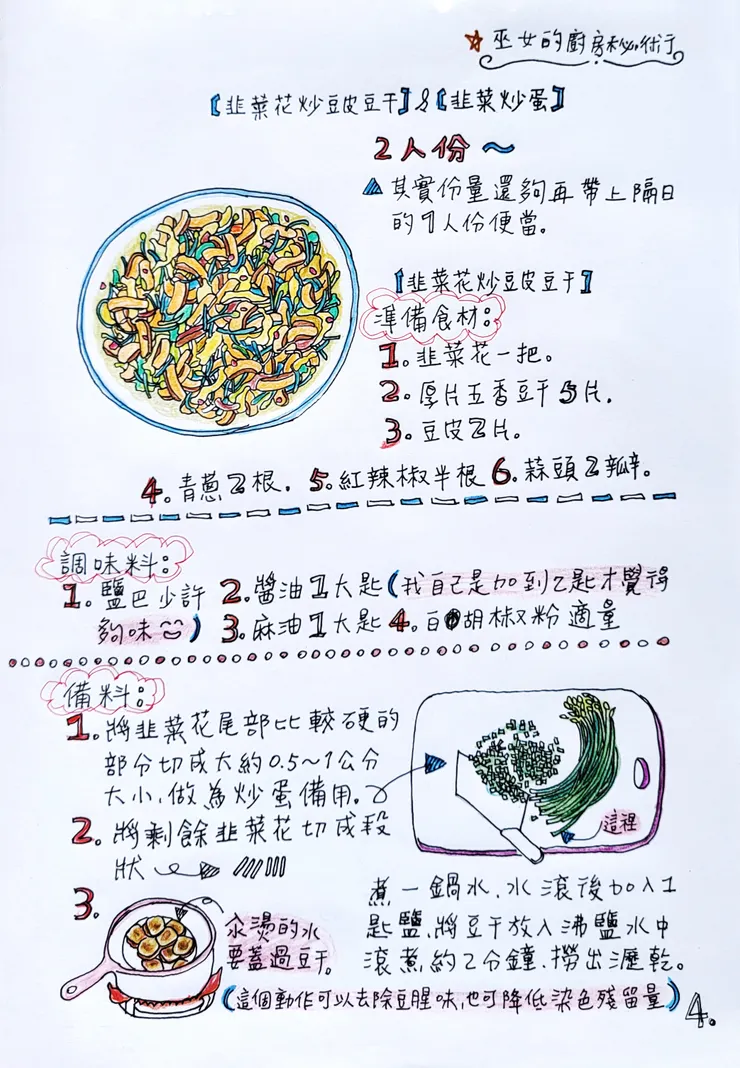 ☆巫女的廚房秘術
【韭菜花炒豆皮豆干】&【韭菜炒蛋】
2人份~
▲其實份量還夠再帶上隔日
的1人份便當。
【韭菜花炒豆皮豆干】
準備食材:
1. 韭菜花一把。
2. 厚片五香豆干5片.
3. 豆皮2片.
4. 青蔥2根. 5. 紅辣椒半根 6. 蒜頭2瓣。
調味料:
1. 鹽巴少許 2. 醬油1大匙(我自己是加到2匙才覺得
夠味) 3. 麻油1大匙 4. 白胡椒粉適量
備料:
1. 將韭菜花尾部比較硬的
部分切成大約0.5~1公分
大小,做為炒蛋備用。
這裡
2. 將剩餘韭菜花切成段
狀
3.
汆燙的水
要蓋過豆干。
煮一鍋水,水滾後加入1
匙鹽,將豆干放入沸鹽水中
滾煮約2分鐘、撈出瀝乾。
(這個動作可以去除豆腥味,也可降低染色殘留量)
4.